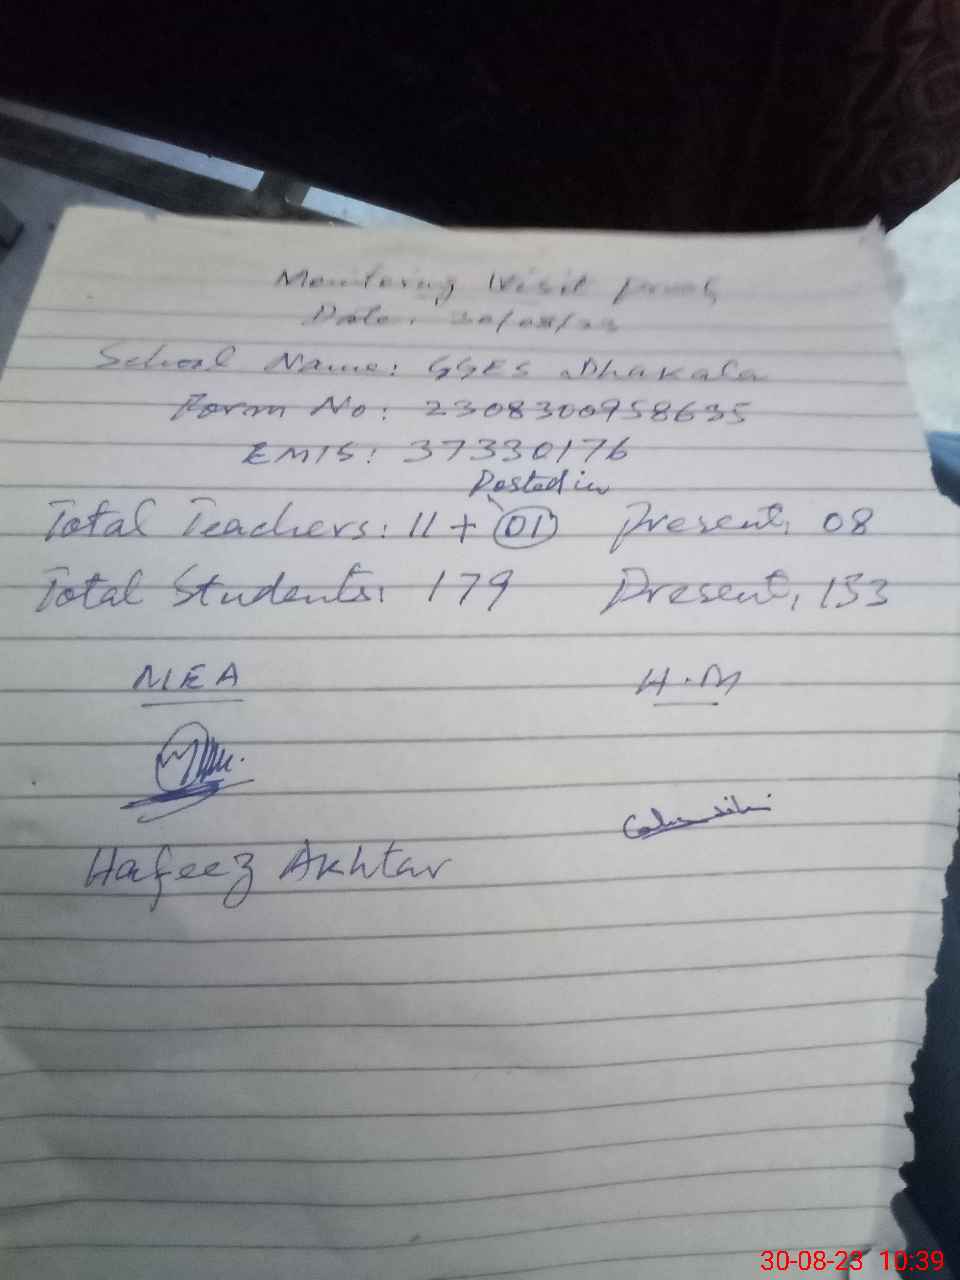 Monitoring Visit proof
Date: 30/08/23
School Name: GGES Dhakala
Form No: 2308300958635
EMIS: 37330176
Posted in
Total Teachers: 11 + 01 Present: 08
Total Students: 179 Present: 153
MEA H.M
Hafeez Akhtar
30-08-23 10:39